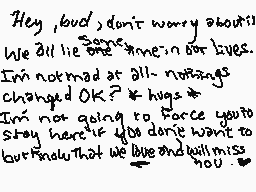 Hey, bud, don't worry about it
We all lie some time in our lives.
I'm not mad at all- nothings
changed OK? *hugs*
I'm not going to force you to
stay here if you don't want to
but know that we love and will miss
you. ♥